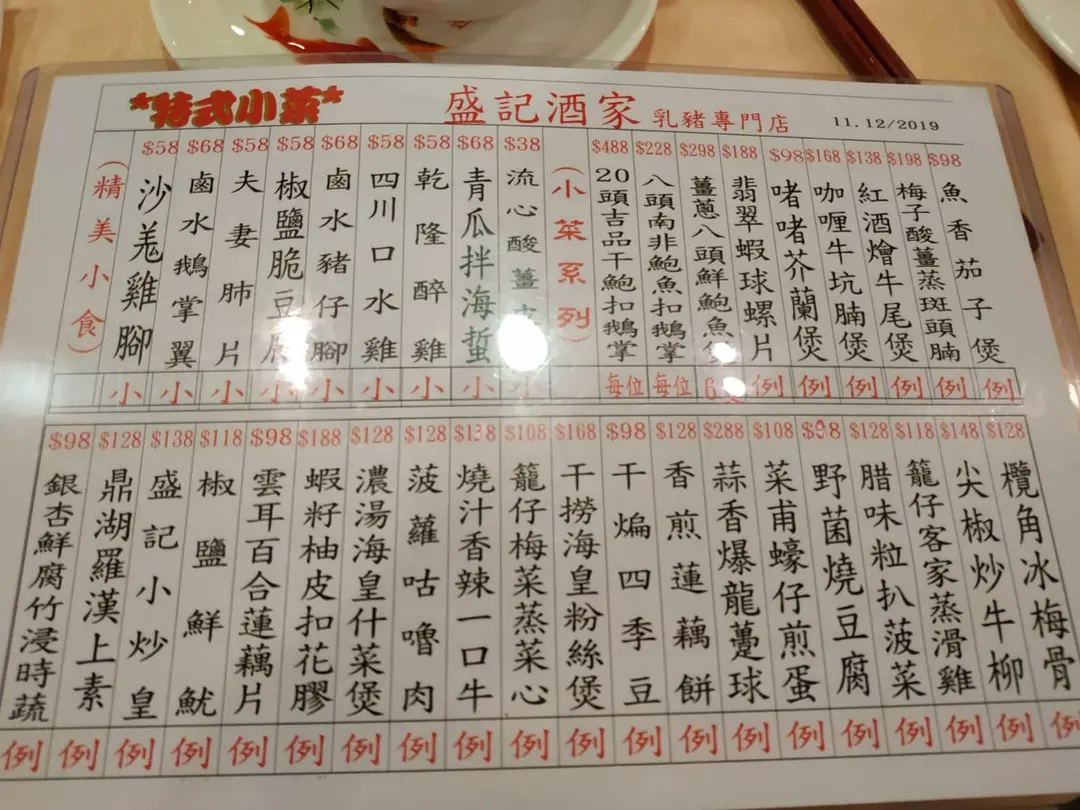 *特式小菜*
盛記酒家 乳豬專門店 11.12/2019
(精美小食)
$58 沙羗雞腳 小
$68 鹵水鵝掌翼 小
$58 夫妻肺片 小
$58 椒鹽脆豆腐 小
$68 鹵水豬仔腳 小
$58 四川口水雞 小
$58 乾隆醉雞 小
$68 青瓜拌海蜇 小
$38 流心酸薑皮 小
(小菜系列)
$488 20頭吉品干鮑扣鵝掌 每位
$228 八頭南非鮑魚扣鵝掌 每位
$298 薑蔥八頭鮮鮑魚 6隻
$188 翡翠蝦球螺片 例
$98 啫啫芥蘭煲 例
$168 咖喱牛坑腩煲 例
$138 紅酒燴牛尾煲 例
$198 梅子酸薑蒸斑頭腩 例
$98 魚香茄子煲 例
$98 銀杏鮮腐竹浸時蔬 例
$128 鼎湖羅漢上素 例
$138 盛記小炒皇 例
$118 椒鹽鮮魷 例
$98 雲耳百合蓮藕片 例
$188 蝦籽柚皮扣花膠 例
$128 濃湯海皇什菜煲 例
$128 菠蘿咕嚕肉 例
$138 燒汁香辣一口牛 例
$108 籠仔梅菜蒸菜心 例
$168 干撈海皇粉絲煲 例
$98 干煸四季豆 例
$128 香煎蓮藕餅 例
$288 蒜香爆龍躉球 例
$108 菜甫蠔仔煎蛋 例
$98 野菌燒豆腐 例
$128 腊味粒扒菠菜 例
$118 籠仔客家蒸滑雞 例
$148 尖椒炒牛柳 例
$128 欖角冰梅骨 例